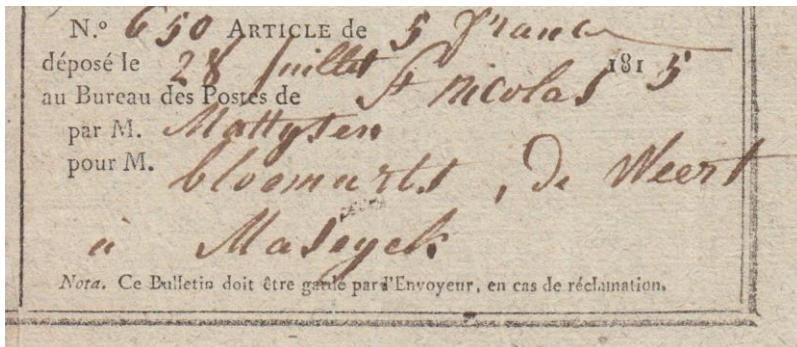 N.º 650 ARTICLE de 5 franc
déposé le 28 Juillet 1815
au Bureau des Postes de St nicolas
par M. Mattysen
pour M. bloemarts, De Weert
à Maseyck
Nota. Ce Bulletin doit être gardé par l'Envoyeur, en cas de réclamation.